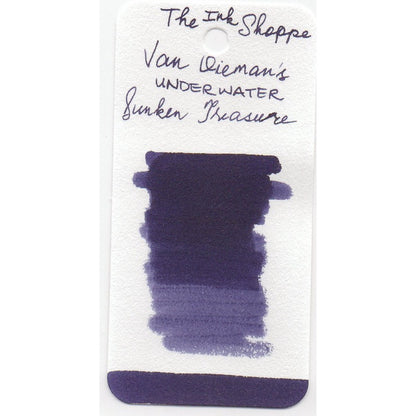 The Ink Shoppe
Van Dieman's
UNDERWATER
Sunken Treasure